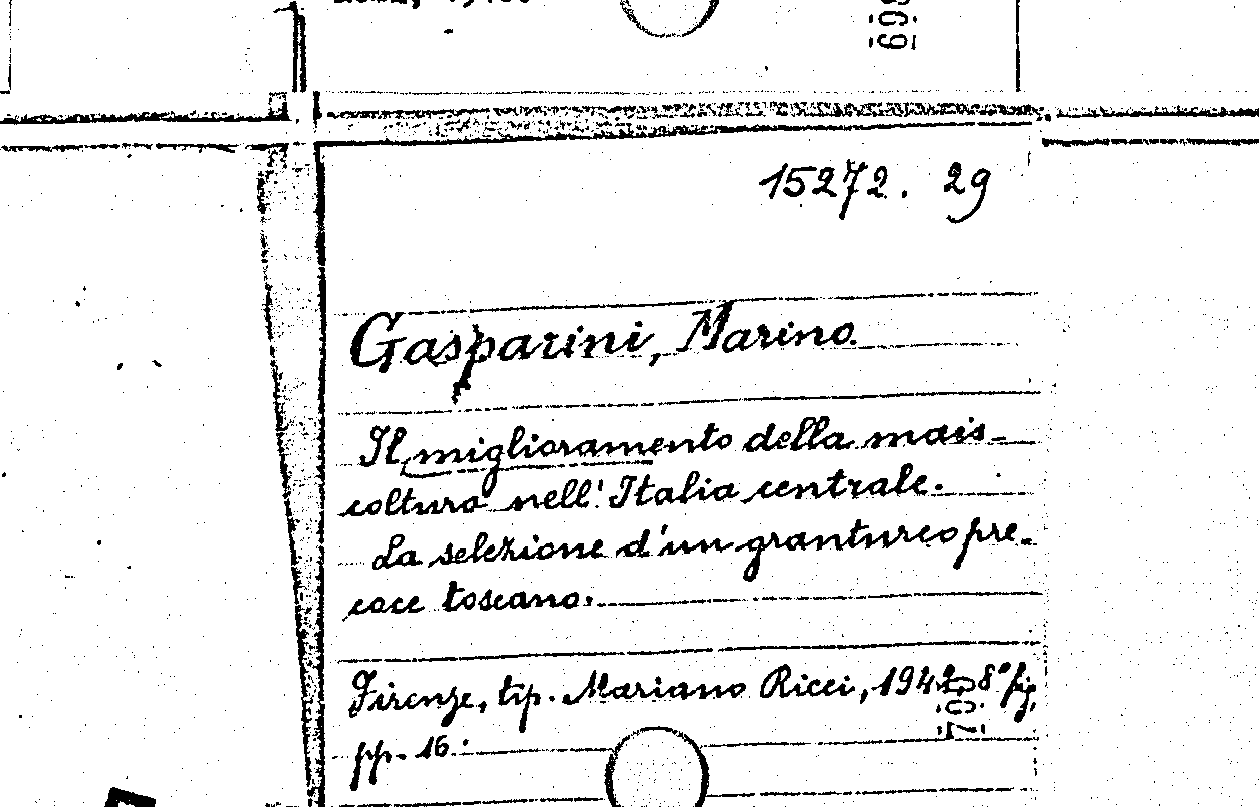 698
15272. 29
Gasparini, Marino.
Il miglioramento della mais-
coltura nell'Italia centrale.
La selezione d'un granturco pre-
coce toscano.
Firenze, tip. Mariano Ricci, 1942, 8° fig,
pp. 16.